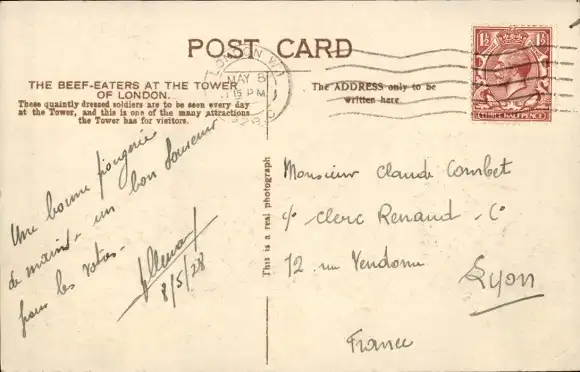 POST CARD
THE BEEF-EATERS AT THE TOWER
OF LONDON.
These quaintly dressed soldiers are to be seen every day
at the Tower, and this is one of the many attractions
the Tower has for visitors.
LONDON. W.1
MAY 8
PM
The ADDRESS only to be
written here
1½ 1½
THREE HALFPENCE
Une bonne poignée
de main & un bon souvenir
pour les votres.
8/5/28
This is a real photograph
Monsieur Claude Combet
c/o Clerc Renaud & Co
12 rue Vendome
Lyon
France